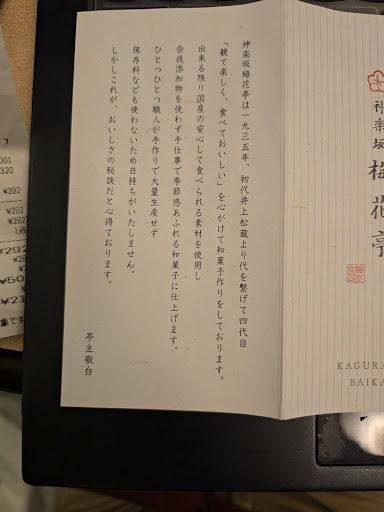 神楽坂
梅花亭
KAGURA
BAIKA
神楽坂梅花亭は一九三五年、初代井上松蔵より代を繋げて四代目
「観て楽しく、食べておいしい」を心がけて和菓子作りをしております。
出来る限り国産の安心して食べられる素材を使用し
合成添加物を使わず手仕事で季節感あふれる和菓子に仕上げます。
ひとつひとつ職人が手作りで大量生産せず
保存料なども使わないため日持ちがいたしません。
しかしこれが、おいしさの秘訣だと心得ております。
亭主敬白
001
320
¥292
¥292